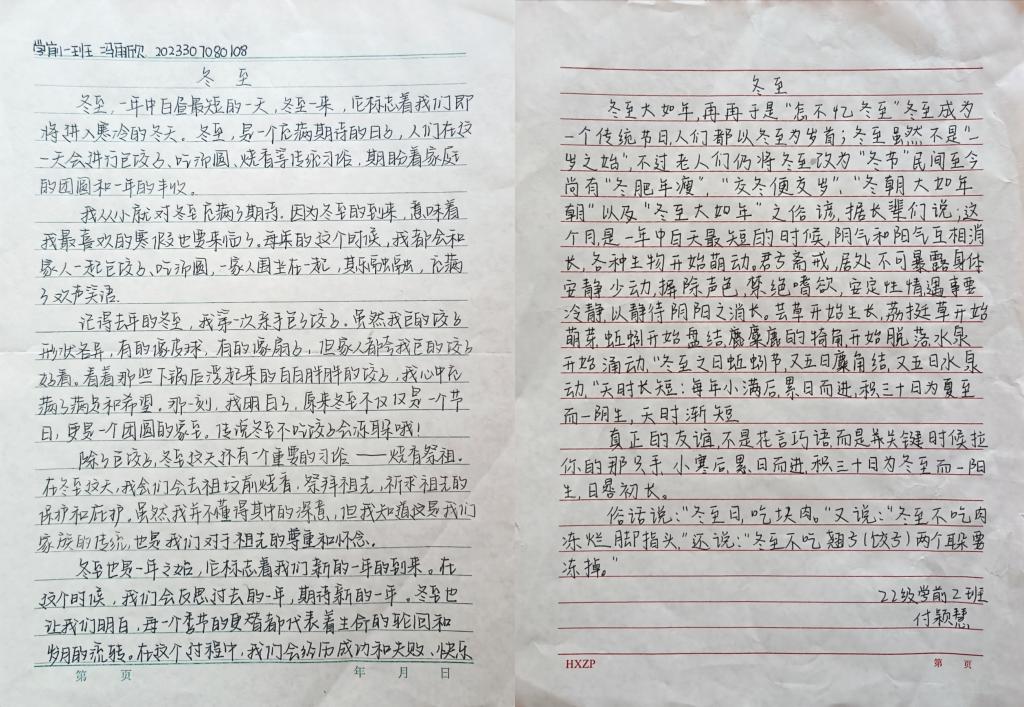 学前一班 冯雨欣 2023307080108
冬至
冬至,一年中白昼最短的一天,冬至一来,它标志着我们即
将进入寒冷的冬天。冬至,是一个充满期待的日子,人们在这
一天会进行包饺子、吃汤圆、烧香等传统习俗,期盼着家庭
的团圆和一年的丰收。
我从小就对冬至充满了期待。因为冬至的到来,意味着
我最喜欢的寒假也要来临了。每年的这个时候,我都会和
家人一起包饺子、吃汤圆,一家人围坐在一起,其乐融融,充满
了欢声笑语.
记得去年的冬至,我第一次亲手包了饺子。虽然我包的饺子
形状各异,有的像皮球,有的像扇子,但家人都夸我包的饺子
好看。看着那些下锅后浮起来的白白胖胖的饺子,我心中充
满了满足和希望。那一刻,我明白了,原来冬至不仅仅是一个节
日,更是一个团圆的象征。传说冬至不吃饺子会冻耳朵哦!
除了包饺子,冬至这天还有一个重要的习俗——烧香祭祖。
在冬至这天,我会们会去祖坟前烧香,祭拜祖先,祈求祖先的
保护和庇护。虽然我并不懂得其中的深意,但我知道这是我们
家族的传统,也是我们对于祖先的尊重和怀念。
冬至也是一年之始,它标志着我们新的一年的到来。在
这个时候,我们会反思过去的一年,期待新的一年。冬至也
让我们明白,每一个季节的更替都代表着生命的轮回和
岁月的流转。在这个过程中,我们会经历成功和失败、快乐
第 页 年 月 日
冬至
冬至大如年,再再于是"怎不忆冬至"冬至成为
一个传统节日人们都以冬至为岁首;冬至虽然不是"一
岁之始",不过老人们仍将冬至改为"冬节"民间至今
尚有"冬肥年瘦"、"交冬便交岁"、"冬朝大如年
朝"以及"冬至大如年"之俗谚,据长辈们说;这
个月,是一年中白天最短的时候,阴气和阳气互相消
长,各种生物开始萌动。君子斋戒,居处不可暴露身体
安静少动,摒除声色,禁绝嗜欲,安定性情遇事要
冷静,以静待阴阳之消长。芸草开始生长,荔挺草开始
萌芽蚯蚓开始盘结,麋的犄角开始脱落水泉
开始涌动,"冬至之日蚯蚓节,又五日麋角结,又五日水泉
动,"天时长短:每年小满后,累日而进,积三十日为夏至
而一阴生,天时渐短
真正的友谊,不是花言巧语而是关键时候拉
你的那只手,小寒后,累日而进,积三十日为冬至而一阳
生,日晷初长。
俗话说:"冬至日,吃块肉。"又说:"冬至不吃肉
冻烂脚指头,"还说:"冬至不吃翘子(饺子)两个耳朵要
冻掉。"
22级学前2班
付颖慧
HXZP 第 页